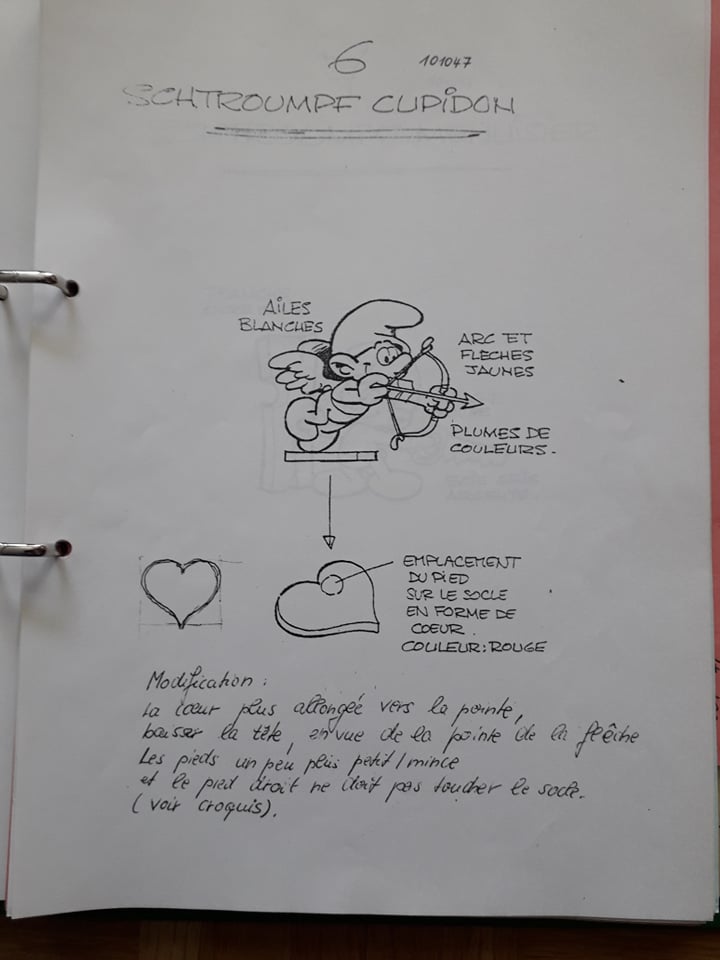 6 101047
SCHTROUMPF CUPIDON
AILES
BLANCHES
ARC ET
FLECHES
JAUNES
PLUMES DE
COULEURS.
EMPLACEMENT
DU PIED
SUR LE SOCLE
EN FORME DE
COEUR.
COULEUR: ROUGE
Modification:
La cœur plus allongée vers la pointe,
baisser la tête, en vue de la pointe de la flêche
Les pieds un peu plus petit/mince
et le pied droit ne doit pas toucher le socle.
(voir croquis).